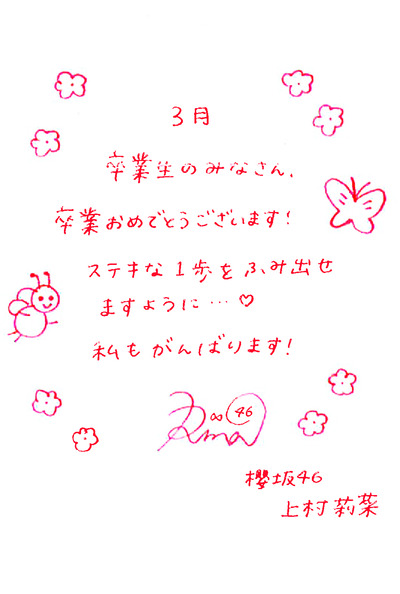 3月
卒業生のみなさん、
卒業おめでとうございます!
ステキな1歩をふみ出せ
ますように…♡
私もがんばります!
46
櫻坂46
上村莉菜